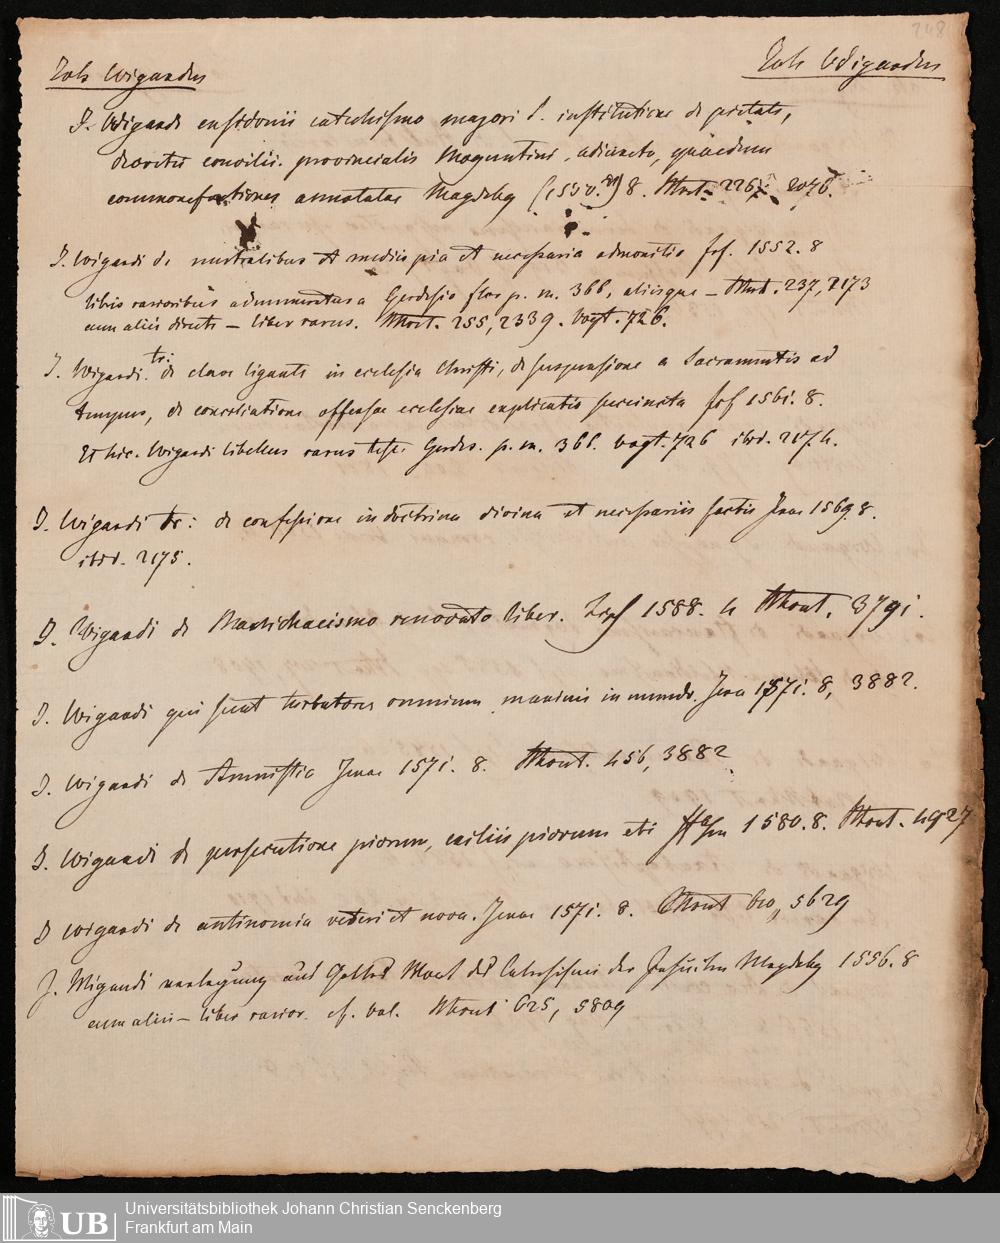 248
Joh Wigandus
Joh Wigandus
J. Wigandi ensidonii catechismo majori s. institutione de pietate,
decretis concilii. provincialis Moguntini, adiuncto, quaedam
commonefactiones annotatae Magdebg (1550.) 8. Mort. 2267 2076.
J. Wigandi de neutralibus et mediis pia et necessaria admonitio fof. 1552. 8
libris rarioribus adnumeratus a Gerdesio flor p. m. 366, aliisque – Mort. 237, 2173
cum aliis directe – liber rarus. Mort. 255, 2339. Vogt. 726.
J. Wigandi tr: de clave ligante in ecclesia Christi, de suspensione a Sacramentis ad
tempus, de conciliatione offensae ecclesiae explicatio succincta fof 1561. 8.
Et hic. Wigandi libellus rarus teste Gerdes. p. m. 366. Vogt. 726 ibid. 2174.
J. Wigandi tr: de confessione in doctrina divina et necessariis factis Jenae 1569. 8.
ibid. 2175.
J. Wigandi de Manichaeismo renovato liber. Lips 1588. 4 Mort. 3791.
J. Wigandi qui sunt turbatores omnium maximis in mundo. Jena 1571. 8, 3882.
J. Wigandi de Amnistia Jenae 1571. 8. Mort. 456, 3882
J. Wigandi de persecutione piorum, exiliis piorum etc 1580. 8. Mort. 4927
J Wigandi de antinomia veteri et nova. Jenae 1571. 8. Mort 5629
J. Wigandi verlegung aus Gottes Wort des Catechismi der Jesuiten Magdebg 1556. 8
cum aliis – liber rarior. cf. Mort 625, 5809
Universitätsbibliothek Johann Christian Senckenberg
UB Frankfurt am Main